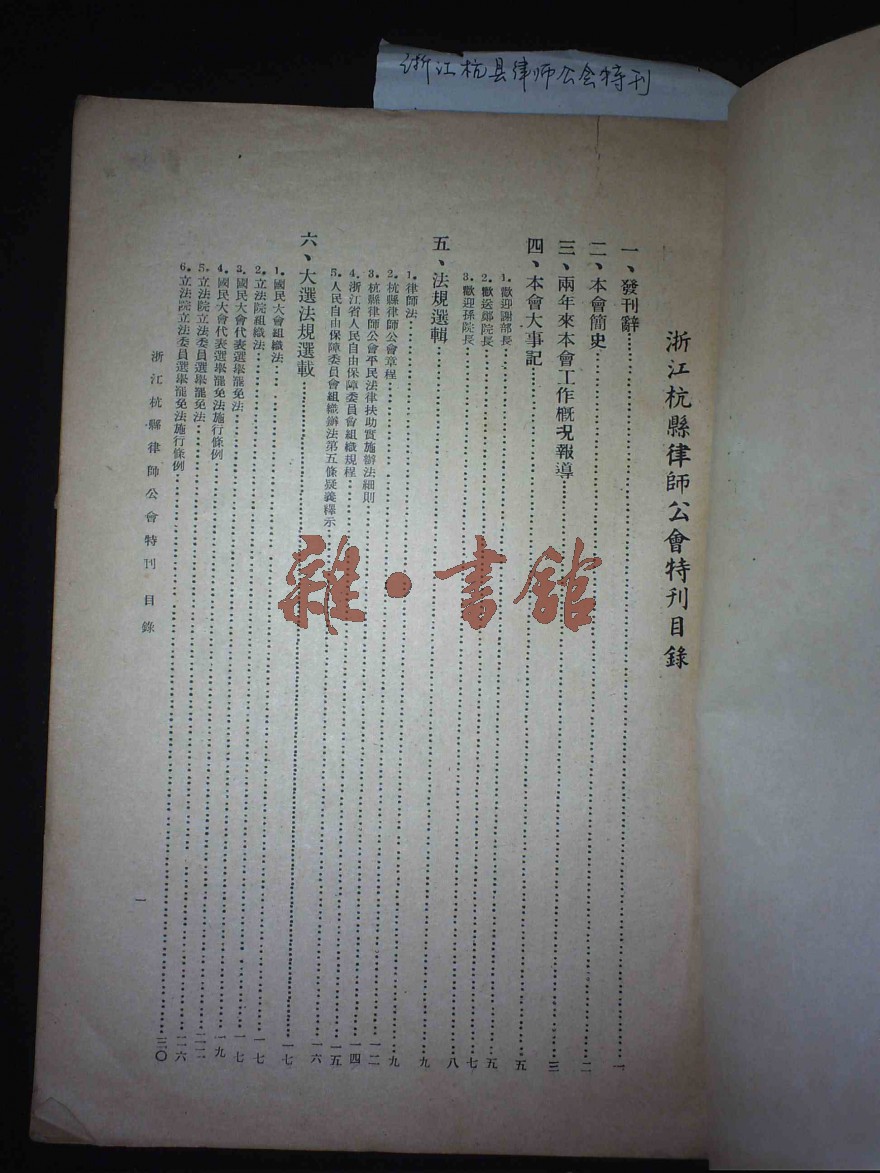 浙江杭县律师公会特刊
浙江杭縣律師公會特刊目錄
一、發刊辭……一
二、本會簡史……二
三、兩年來本會工作概况報導……三
四、本會大事記……五
1.歡迎謝部長……五
2.歡送鄭院長……七
3.歡迎孫院長……八
五、法規選輯……九
1.律師法……九
2.杭縣律師公會章程……一二
3.杭縣律師公會平民法律扶助實施辦法細則……一四
4.浙江省人民自由保障委員會組織規程……一五
5.人民自由保障委員會組織辦法第五條疑義釋示……一六
六、大選法規選載……一七
1.國民大會組織法……一七
2.立法院組織法……一七
3.國民大會代表選舉罷免法……一九
4.國民大會代表選舉罷免法施行條例……二二
5.立法院立法委員選舉罷免法……二六
6.立法院立法委員選舉罷免法施行條例……三〇
浙江杭縣律師公會特刊 目錄
一
雜·書館